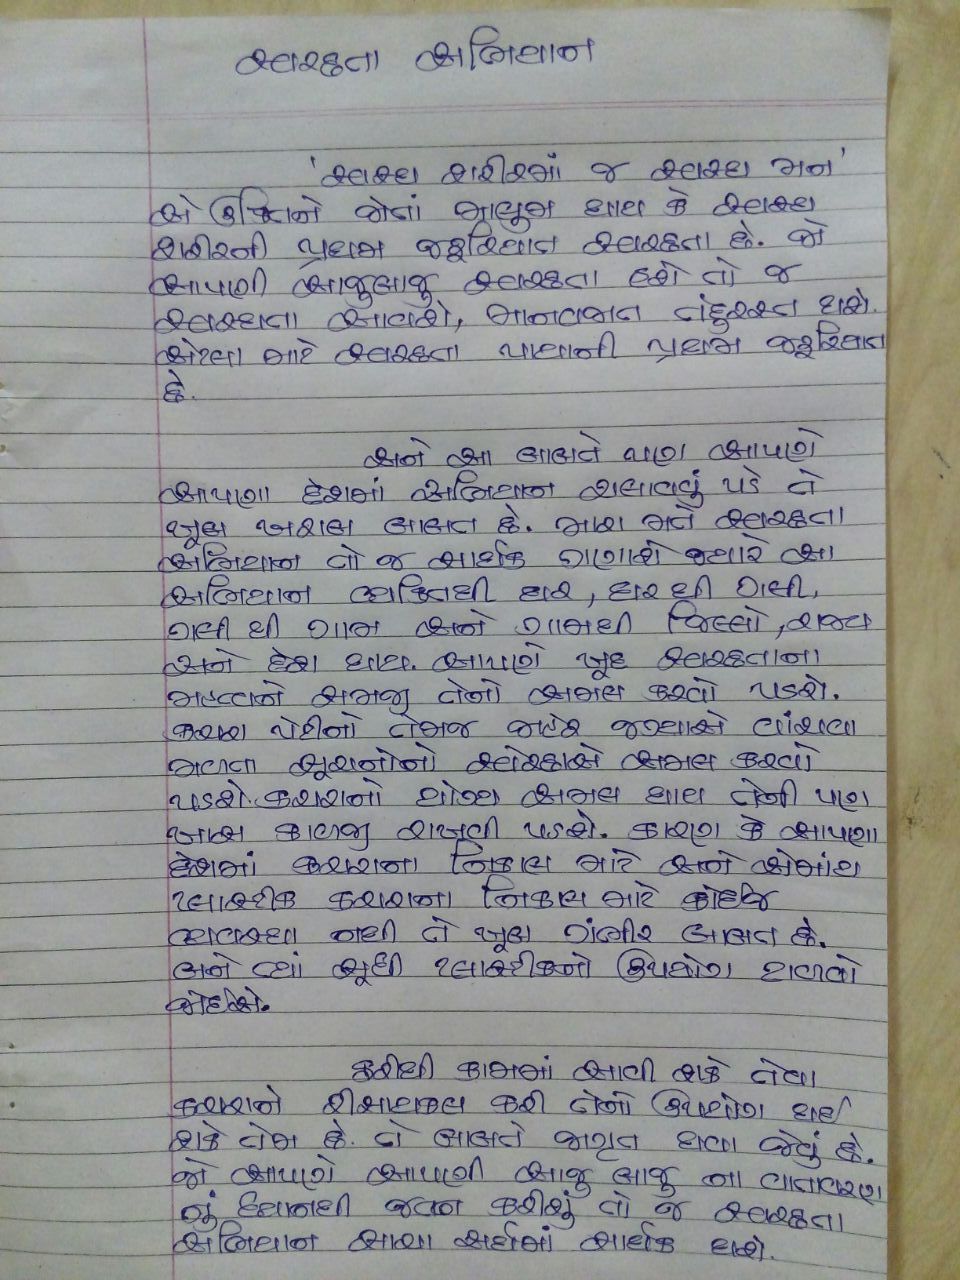 સ્વચ્છતા અભિયાન
'સ્વસ્થ શરીરમાં જ સ્વસ્થ મન'
એ ઉક્તિને જોતાં માલુમ થાય કે સ્વસ્થ
શરીરની પ્રથમ જરૂરિયાત સ્વચ્છતા છે. જો
આપણી આજુબાજુ સ્વચ્છતા હશે તો જ
સ્વસ્થતા આવશે, માનવજાત તંદુરસ્ત થશે.
એટલા માટે સ્વચ્છતા પાયાની પ્રથમ જરૂરિયાત
છે.
અને આ બાબતે પણ આપણે
આપણા દેશમાં અભિયાન ચલાવવું પડે તે
ખૂબ ખરાબ બાબત છે. મારા મતે સ્વચ્છતા
અભિયાન તો જ સાર્થક ગણાશે જ્યારે આ
અભિયાન વ્યક્તિથી ઘર, ઘર થી ગલી,
ગલી થી ગામ અને ગામથી જિલ્લો, રાજ્ય
અને દેશ થાય. આપણે ખુદ સ્વચ્છતાના
મહત્વને સમજી તેનો અમલ કરવો પડશે.
કચરા પેટીનો તેમજ જાહેર જગ્યાએ વાંચવા
મળતા સૂચનોનો સ્વેચ્છાએ અમલ કરવો
પડશે. કચરાનો યોગ્ય અમલ થાય તેની પણ
ખાસ કાળજી રાખવી પડશે. કારણ કે આપણા
દેશમાં કચરાના નિકાલ માટે અને એમાંય
પ્લાસ્ટીક કચરાના નિકાલ માટે કોઈજ
વ્યવસ્થા નથી તે ખૂબ ગંભીર બાબત છે.
બને ત્યાં સૂધી પ્લાસ્ટીકનો ઉપયોગ ટાળવો
જોઈએ.
ફરીથી કામમાં આવી શકે તેવા
કચરાને રીસાયકલ કરી તેનો ઉપયોગ થઈ
શકે તેમ છે. તે બાબતે જાગૃત થવા જેવું છે.
જો આપણે આપણી આજુ બાજુ ના વાતાવરણ
નું ધ્યાનથી જતન કરીશું તો જ સ્વચ્છતા
અભિયાન સાચા અર્થમાં સાર્થક થશે.